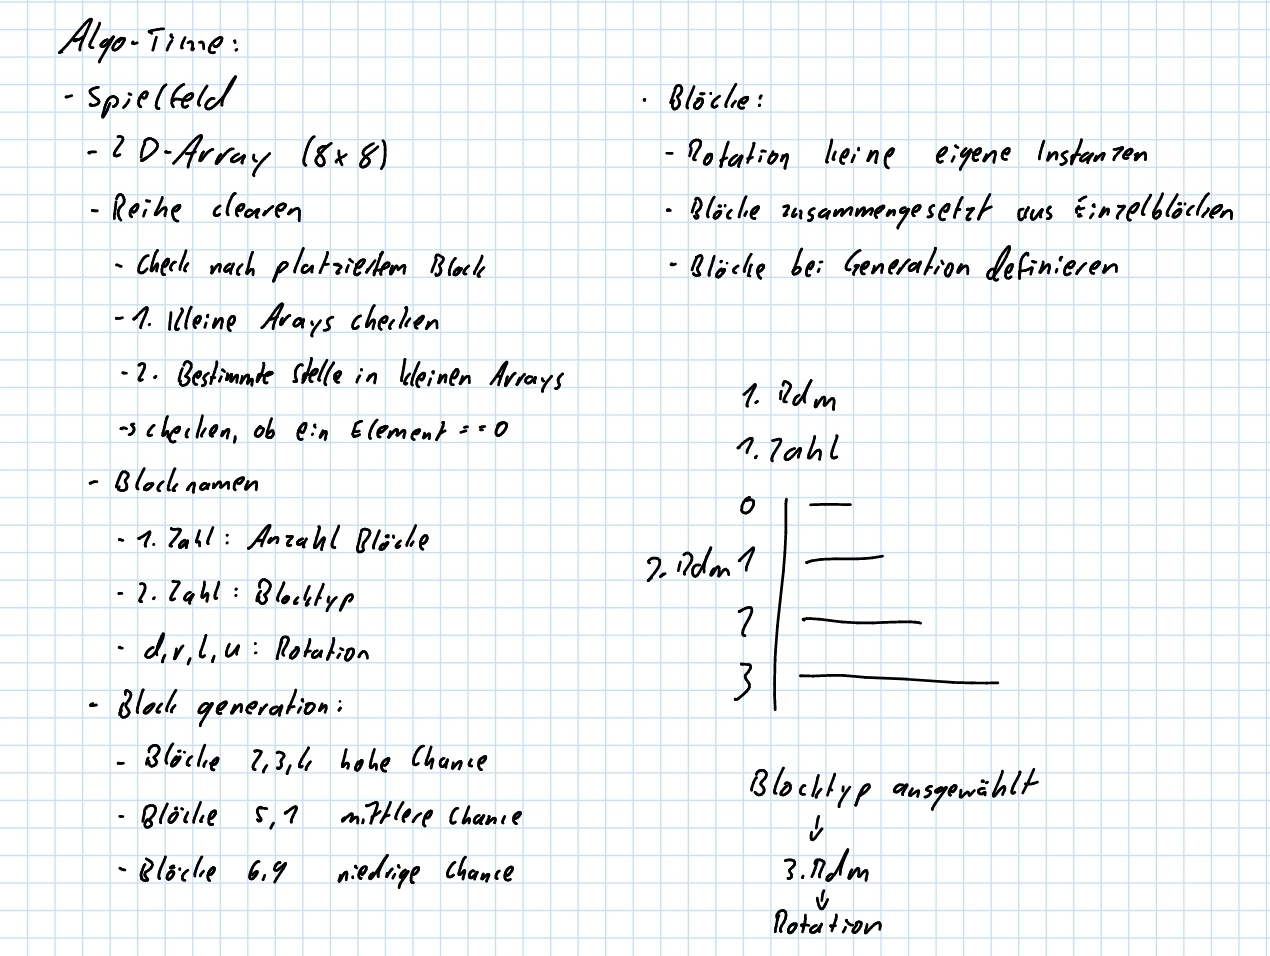 Algo-Time:
- Spielfeld
- 2D-Array (8x8)
- Reihe clearen
- Check nach platziertem Block
- 1. Kleine Arays checken
- 2. Bestimmte Stelle in kleinen Arrays
-> checken, ob ein Element == 0
- Blocknamen
- 1. Zahl: Anzahl Blöcke
- 2. Zahl: Blocktyp
- d, r, l, u: Rotation
- Block generation:
- Blöcke 2,3,4 hohe Chance
- Blöcke 5,1 mittlere Chance
- Blöcke 6,9 niedrige Chance
· Blöcke:
- Rotation keine eigene Instanzen
- Blöcke zusammengesetzt aus Einzelblöcken
- Blöcke bei Generation definieren
1. Rdm
1. Zahl
0
2. Rdm 1
2
3
Blocktyp ausgewählt
↓
3. Rdm
↓
Rotation